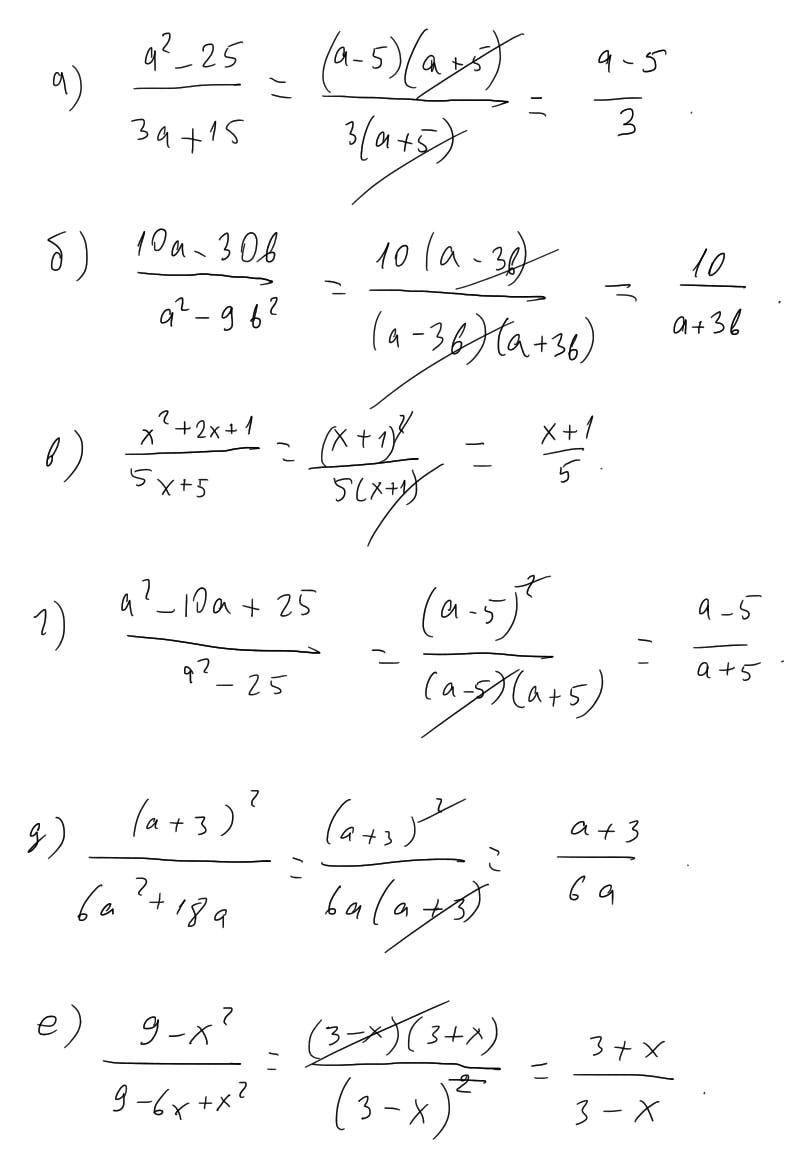 а) (a² - 25)/(3a + 15) = ((a - 5)(a + 5))/(3(a + 5)) = (a - 5)/3 .
б) (10a - 30b)/(a² - 9b²) = (10(a - 3b))/((a - 3b)(a + 3b)) = 10/(a + 3b) .
в) (x² + 2x + 1)/(5x + 5) = (x + 1)²/(5(x + 1)) = (x + 1)/5 .
г) (a² - 10a + 25)/(a² - 25) = (a - 5)²/((a - 5)(a + 5)) = (a - 5)/(a + 5) .
д) (a + 3)²/(6a² + 18a) = (a + 3)²/(6a(a + 3)) = (a + 3)/(6a) .
е) (9 - x²)/(9 - 6x + x²) = ((3 - x)(3 + x))/(3 - x)² = (3 + x)/(3 - x) .